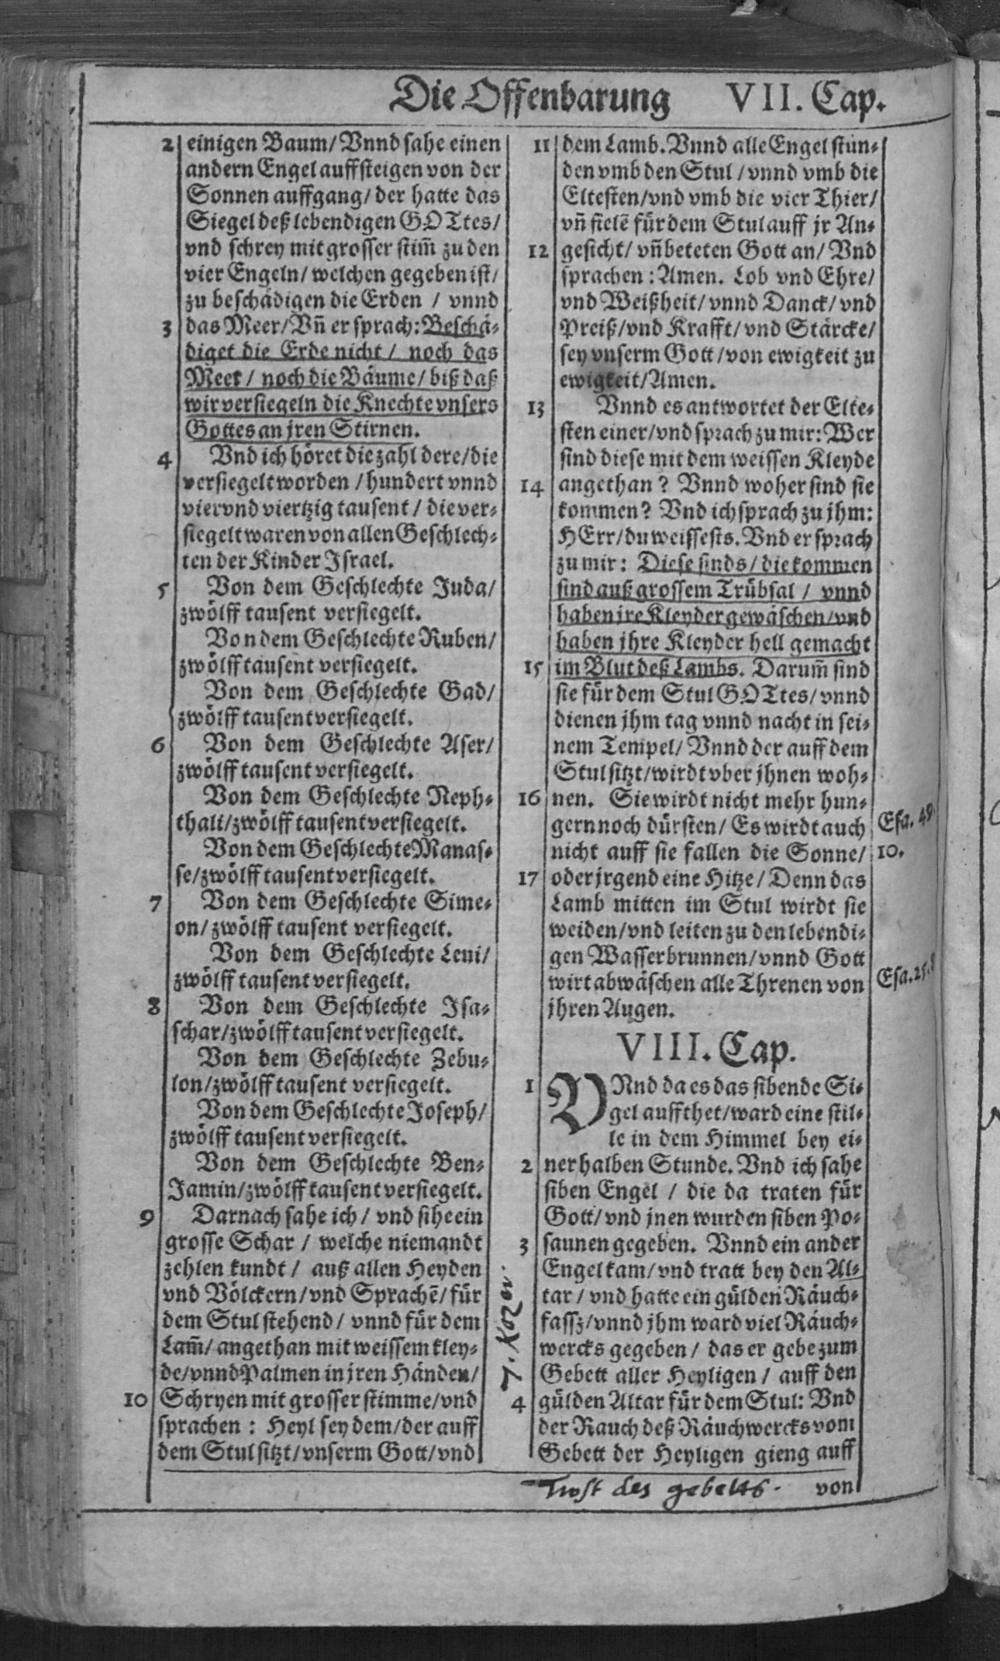 Die Offenbarung VII. Cap.
2 einigen Baum/ Vnnd sahe einen
andern Engel auffsteigen von der
Sonnen auffgang/ der hatte das
Siegel deß lebendigen GOTtes/
vnd schrey mit grosser stim̃ zu den
vier Engeln/ welchen gegeben ist/
zu beschädigen die Erden / vnnd
3 das Meer/ Vñ er sprach: Beschä-
diget die Erde nicht / noch das
Meer / noch die Bäume/ biß daß
wir versiegeln die Knechte vnsers
Gottes an jren Stirnen.
4 Vnd ich höret die zahl dere/ die
versiegelt worden / hundert vnnd
vier vnd viertzig tausent / die ver-
siegelt waren von allen Geschlech-
ten der Kinder Israel.
5 Von dem Geschlechte Juda/
zwölff tausent versiegelt.
Von dem Geschlechte Ruben/
zwölff tausent versiegelt.
Von dem Geschlechte Gad/
zwölff tausent versiegelt.
6 Von dem Geschlechte Aser/
zwölff tausent versiegelt.
Von dem Geschlechte Neph-
thali/ zwölff tausent versiegelt.
Von dem Geschlechte Manas-
se/ zwölff tausent versiegelt.
7 Von dem Geschlechte Sime-
on/ zwölff tausent versiegelt.
Von dem Geschlechte Leui/
zwölff tausent versiegelt.
8 Von dem Geschlechte Isa-
schar/ zwölff tausent versiegelt.
Von dem Geschlechte Zebu-
lon/ zwölff tausent versiegelt.
Von dem Geschlechte Joseph/
zwölff tausent versiegelt.
Von dem Geschlechte Ben-
Jamin/ zwölff tausent versiegelt.
9 Darnach sahe ich / vnd sihe ein
grosse Schar / welche niemandt
zehlen kundt / auß allen Heyden
vnd Völckern/ vnd Sprachẽ/ für
dem Stul stehend / vnnd für dem
Lam̃/ angethan mit weissem kley-
de/ vnnd Palmen in jren Händen/
10 Schryen mit grosser stimme/ vnd
sprachen : Heyl sey dem/ der auff
dem Stul sitzt/ vnserm Gott/ vnd
11 dem Lamb. Vnnd alle Engel stun-
den vmb den Stul / vnnd vmb die
Eltesten/ vnd vmb die vier Thier/
vñ fielẽ für dem Stul auff jr An-
12 gesicht/ vñ beteten Gott an/ Vnd
sprachen : Amen. Lob vnd Ehre/
vnd Weißheit/ vnnd Danck/ vnd
Preiß/ vnd Krafft/ vnd Stärcke/
sey vnserm Gott/ von ewigkeit zu
ewigkeit/ Amen.
13 Vnnd es antwortet der Elte-
sten einer/ vnd sprach zu mir: Wer
sind diese mit dem weissen Kleyde
14 angethan ? Vnnd woher sind sie
kommen? Vnd ich sprach zu jhm:
HErr/ du weissests. Vnd er sprach
zu mir : Diese sinds / die kommen
sind auß grossem Trübsal / vnnd
haben ire Kleyder gewäschen/ vnd
haben jhre Kleyder hell gemacht
15 im Blut deß Lambs. Darum̃ sind
sie für dem Stul GOTtes/ vnnd
dienen jhm tag vnnd nacht in sei-
nem Tempel/ Vnnd der auff dem
Stul sitzt/ wirdt vber jhnen woh-
16 nen. Sie wirdt nicht mehr hun-
gern noch dürsten/ Es wirdt auch Esa. 49.
nicht auff sie fallen die Sonne/ 10.
17 oder jrgend eine Hitze/ Denn das
Lamb mitten im Stul wirdt sie
weiden/ vnd leiten zu den lebendi-
gen Wasserbrunnen/ vnnd Gott
wirt abwäschen alle Threnen von Esa. 25. 8
jhren Augen.
VIII. Cap.
1 VNnd da es das sibende Si-
gel auffthet/ ward eine stil-
le in dem Himmel bey ei-
2 ner halben Stunde. Vnd ich sahe
siben Engel / die da traten für
Gott/ vnd jnen wurden siben Po-
3 saunen gegeben. Vnnd ein ander
Engel kam/ vnd tratt bey den Al-
tar / vnd hatte ein gülden Räuch-
fassz/ vnnd jhm ward viel Räuch-
wercks gegeben / das er gebe zum
Gebett aller Heyligen / auff den
4 gülden Altar für dem Stul: Vnd
der Rauch deß Räuchwercks vom
Gebett der Heyligen gieng auff
von
Trost des gebetts.